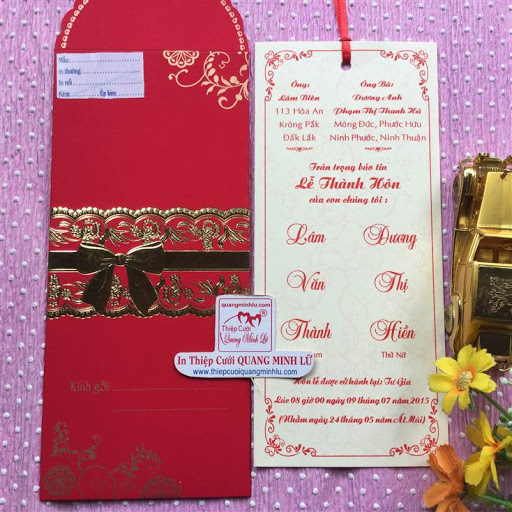 Mẫu:
in thường:
In nổi:
Đếm: Ép kim:
Kính gửi:
quangminhlu.com
Thiệp Cưới
Quang Minh Lữ
In Thiệp Cưới QUANG MINH LỮ
www.thiepcuoiquangminhlu.com
Ông:
Lâm Biên
113 Hòa An
Krông Pắk
Đắk Lắk
Ông Bà:
Dương Anh
Phạm Thị Thanh Hà
Mộng Đức, Phước Hữu
Ninh Phước, Ninh Thuận
Trân trọng báo tin
Lễ Thành Hôn
của con chúng tôi :
Lâm Dương
Văn Thị
Thành Hiên
Thứ Nữ
Hôn lễ được cử hành tại: Tư Gia
Lúc 08 giờ 00 ngày 09 tháng 07 năm 2015
(Nhằm ngày 24 tháng 05 năm Ất Mùi)